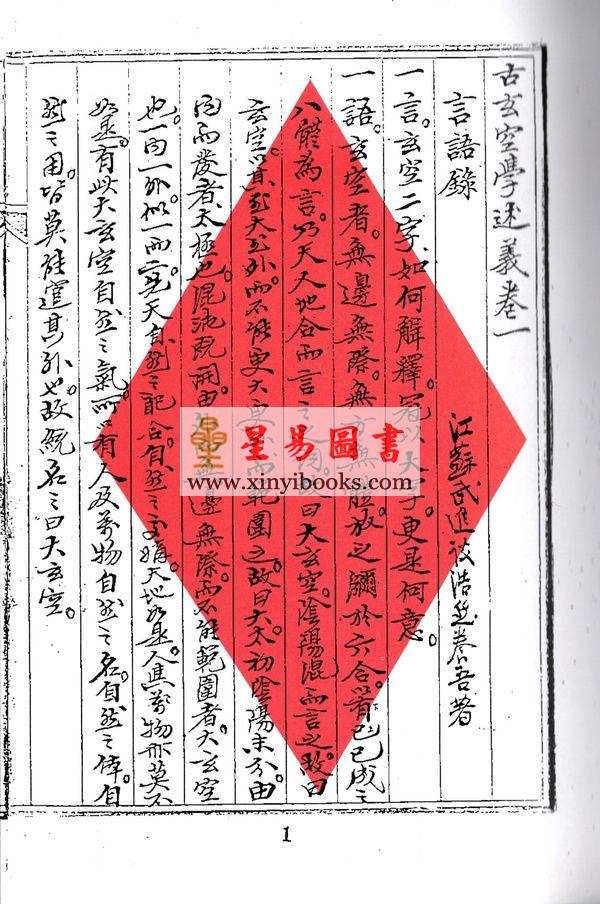 古玄空學述義卷一
言語錄
江蘇武進
養吾著
一言。玄空二字、如何解釋。冠以大字。更是何意。
一語。玄空者。無邊無際。無方無體。放之彌於六合。
已成之
八體為言。乃天人地合而言之
曰大玄空。陰陽混而言之。故曰
玄空。其大
外。而不能更大
而範圍之。故曰大。太初陰陽未分。由
內而發者。太極也。混沌既開。由
無邊無際。而不能範圍者。大玄空
也。一內一外。似一而二。
天自然之配合。自然之
天地如是。人焦萬物亦莫不
如是。有此大玄空自然之氣。而
有人及萬物自然之名。自然之
自
然之用。皆莫能
其外也。故統名之曰大玄空。
星易圖書
www.xinyibooks.com
1